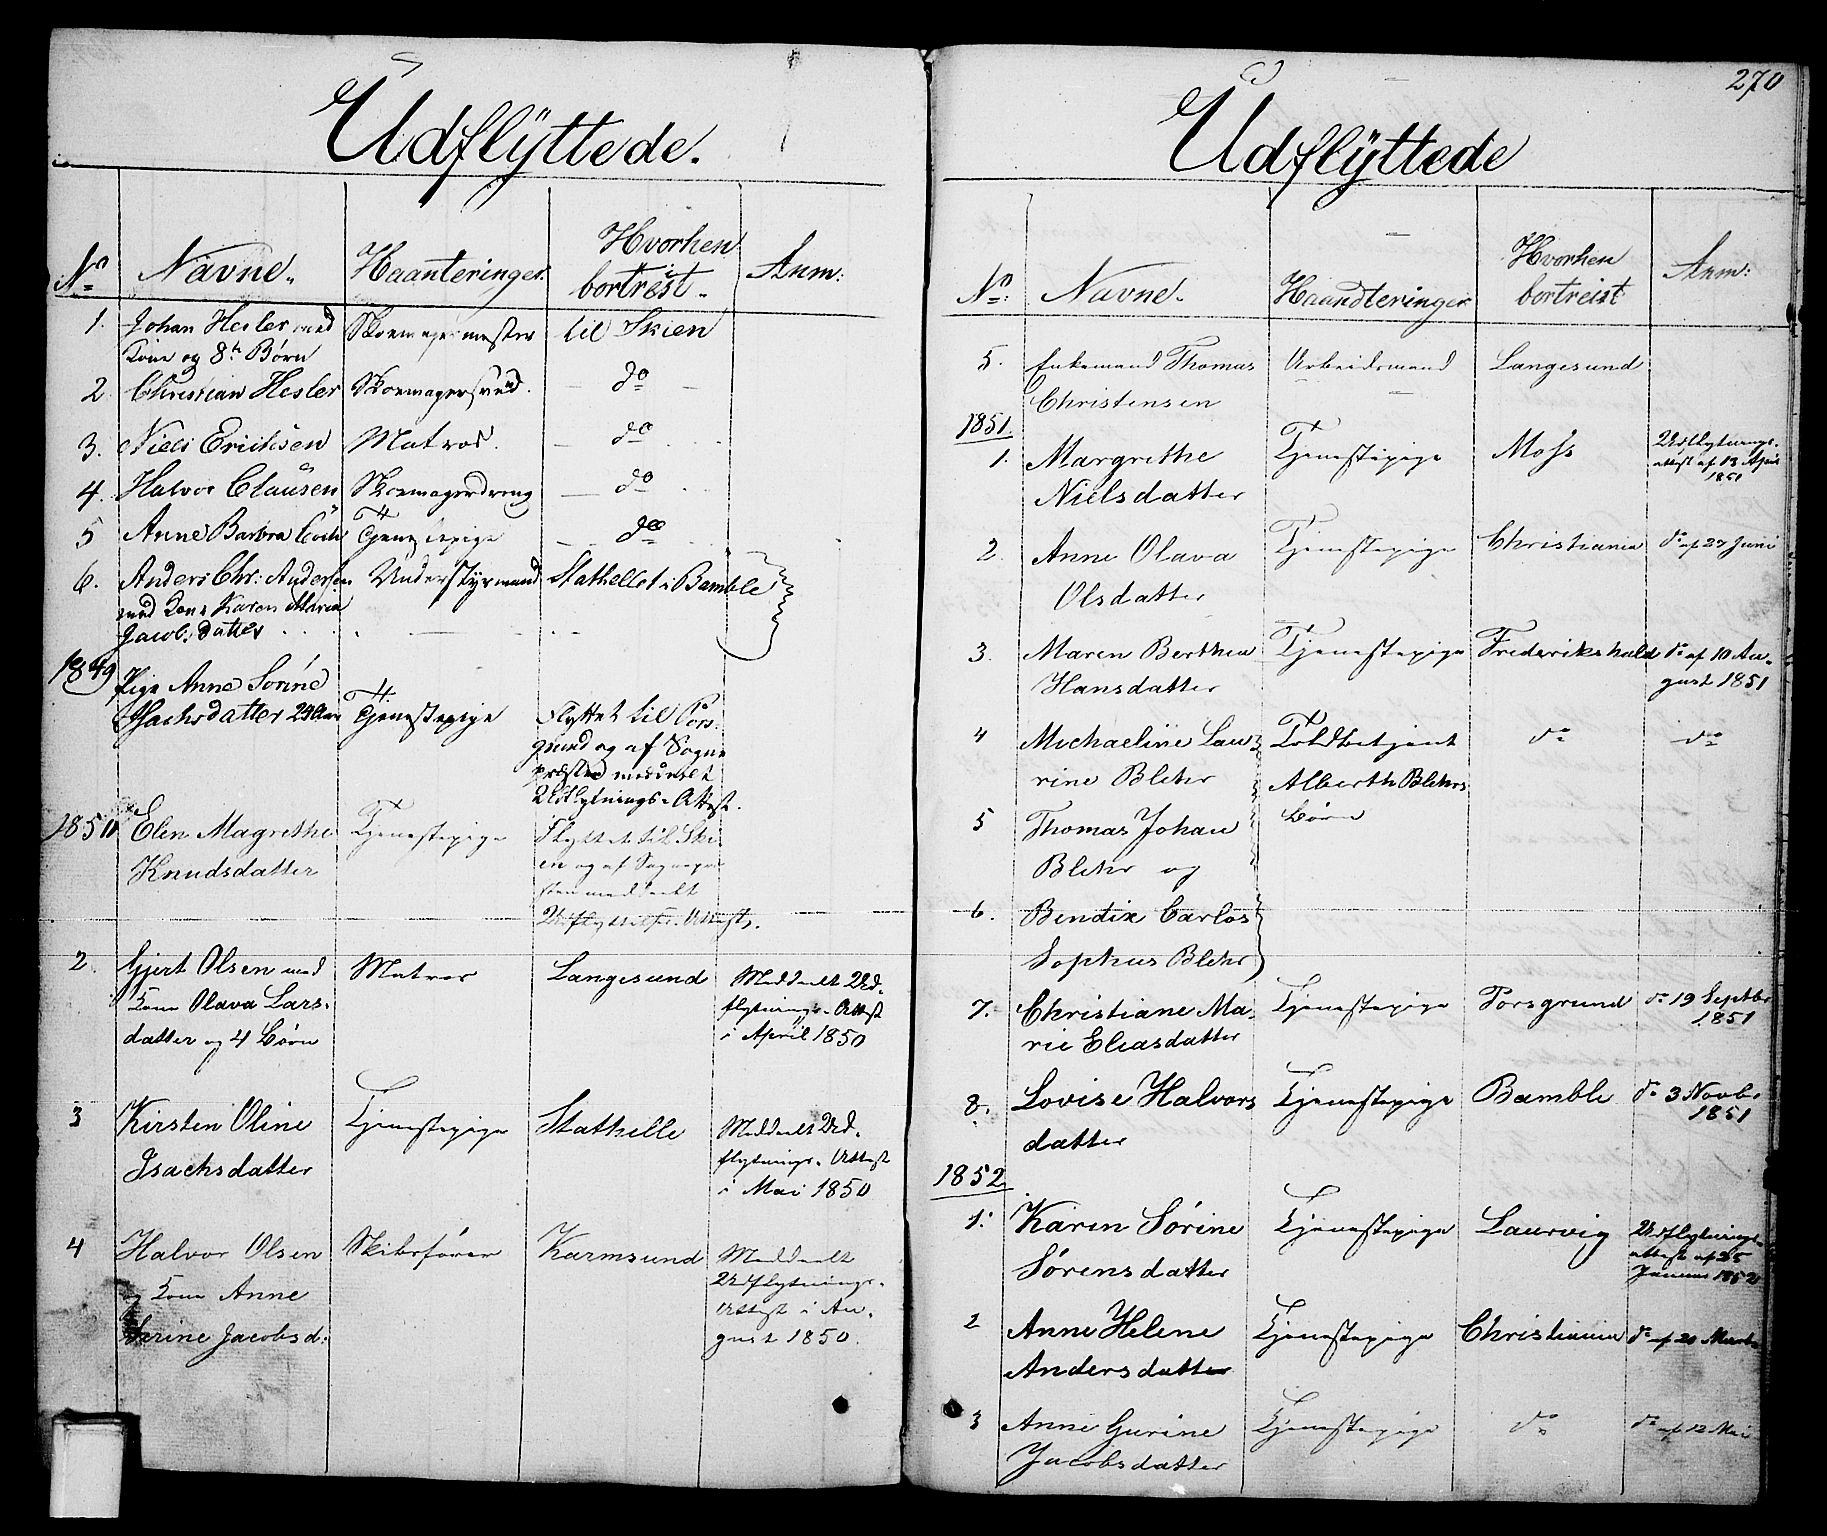 Udflyttede.
No Navne. Haanteringer. Hvorhen bortreist. Anm:
1. Johan Hesler med Skomagermester til Skien
Kone og 8te Børn
2. Christian Hesler Skomagersvend. — do —
3. Niels Erichsen Matros. — do
4. Halvor Clausen Skomagerdreng — do
5 Anne Barbra Tjenestepige — do
6. Anders Chr: Andersen Understyrmand Stathellet i Bamble
med Kone Karen Maria
Jacob: datter
1849 Pige Anne Sorine
Isachsdatter 24 Aar Tjenestepige flyttet til Pors-
grund og af Sogne
præsten meddeelt
Udflytnings-Attest.
1850 Elen Magrethe Tjenestepige Flyttet til Ski-
Knudsdatter en og af Sognepræ-
sten meddeelt
Attest.
2. Gjert Olsen med Matros Langesund Meddeelt Ud-
Kone Olava Lars- flytnings-Attest
datter og 4 Børn i April 1850
3 Kirsten Oline Tjenestepige Stathelle Meddeelt Ud-
Isachsdatter flytnings-Attest
i Mai 1850
4 Halvor Olsen Skibsfører Karmsund Meddeelt
og Kone Anne Udflytnings-
Serine Jacobsd: Attest i Au-
gust 1850.
270
Udflyttede
No: Navne. Haandteringer Hvorhen bortreist Anm:
5. Enkemand Thomas Arbeidsmand Langesund
Christensen
1851.
1. Margrethe Tjenestepige Moss Udflytnings-
Nielsdatter attest af 13 April
1851
2. Anne Olava Tjenestepige Christiania do af 27 Juni
Olsdatter
3. Maren Berthea Tjenestepige Frederikshald do af 10 Au-
Hansdatter gust 1851
4 Michaeline Lau- Toldbetjent do do
rine Blehr Alberth Blehrs
5 Thomas Johan Børn
Blehr og
6. Bendix Carlos
Sophus Blehr
7. Christiane Ma- Tjenestepige Porsgrund do 19 Septbr
rie Eliasdatter 1851
8. Lovise Halvors Tjenestepige Bamble do 3 Novbr
datter 1851
1852
1. Karen Sørine Tjenestepige Laurvig Udflytnings-
Sørensdatter attest af 25
Januar 1852
2 Anne Helene Tjenestepige Christiania do af 20 Marts
Andersdatter
3 Anne Gurine Tjenestepige do do af 12 Mai
Jacobsdatter